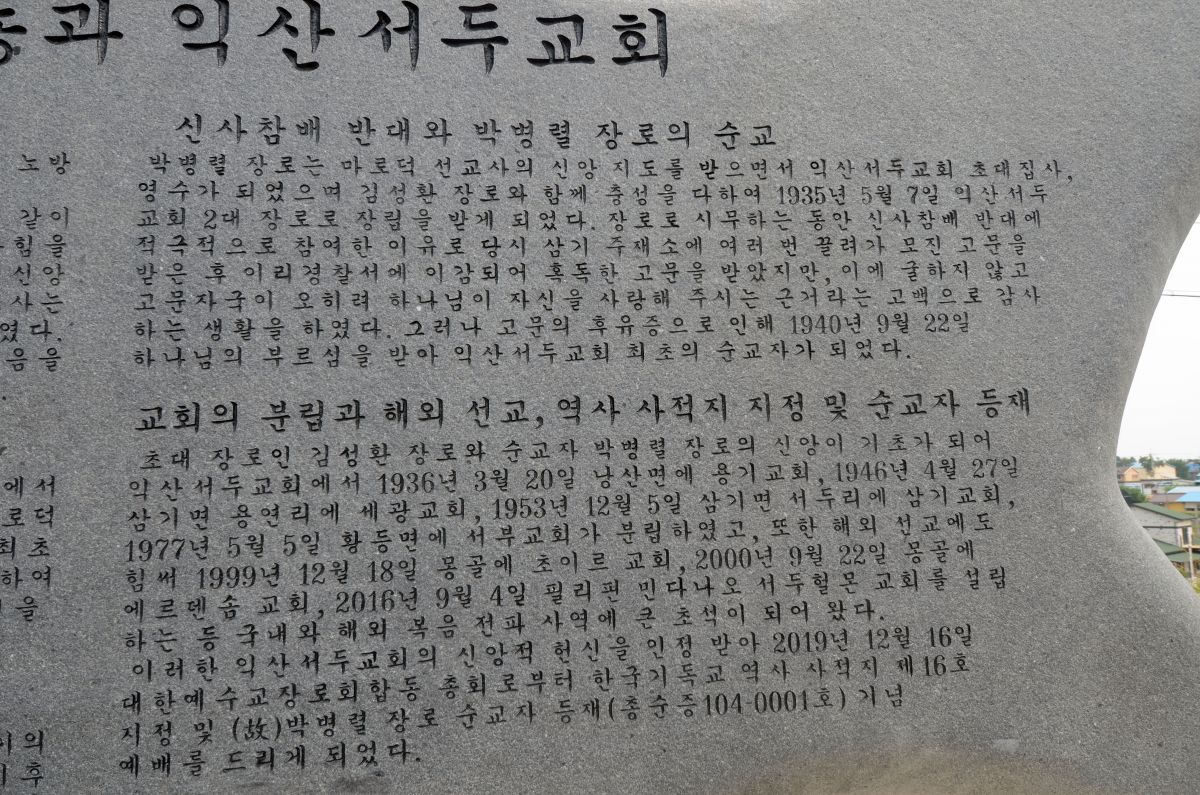 과 익산서두교회
신사참배 반대와 박병렬 장로의 순교
노방
박병렬 장로는 마로덕 선교사의 신앙 지도를 받으면서 익산서두교회 초대집사,
영수가 되었으며 김성환 장로와 함께 충성을 다하여 1935년 5월 7일 익산서두
같이
교회 2대 장로로 장립을 받게 되었다. 장로로 시무하는 동안 신사참배 반대에
힘을
적극적으로 참여한 이유로 당시 삼기 주재소에 여러 번 끌려가 모진 고문을
신앙
받은 후 이리경찰서에 이감되어 혹독한 고문을 받았지만, 이에 굴하지 않고
사는
고문자국이 오히려 하나님이 자신을 사랑해 주시는 근거라는 고백으로 감사
였다.
하는 생활을 하였다. 그러나 고문의 후유증으로 인해 1940년 9월 22일
음을
하나님의 부르심을 받아 익산서두교회 최초의 순교자가 되었다.
교회의 분립과 해외 선교, 역사 사적지 지정 및 순교자 등재
초대 장로인 김성환 장로와 순교자 박병렬 장로의 신앙이 기초가 되어
에서
익산서두교회에서 1936년 3월 20일 낭산면에 용기교회, 1946년 4월 27일
로덕
삼기면 용연리에 세광교회, 1953년 12월 5일 삼기면 서두리에 삼기교회,
최초
1977년 5월 5일 황등면에 서부교회가 분립하였고, 또한 해외 선교에도
하여
힘써 1999년 12월 18일 몽골에 초이르 교회, 2000년 9월 22일 몽골에
을
에르덴솜 교회, 2016년 9월 4일 필리핀 민다나오 서두헐몬 교회를 설립
하는 등 국내와 해외 복음 전파 사역에 큰 초석이 되어 왔다.
이러한 익산서두교회의 신앙적 헌신을 인정 받아 2019년 12월 16일
대한예수교장로회합동 총회로부터 한국기독교 역사 사적지 제16호
지정 및 (故)박병렬 장로 순교자 등재(총순증104-0001호) 기념
이의
예배를 드리게 되었다.
후